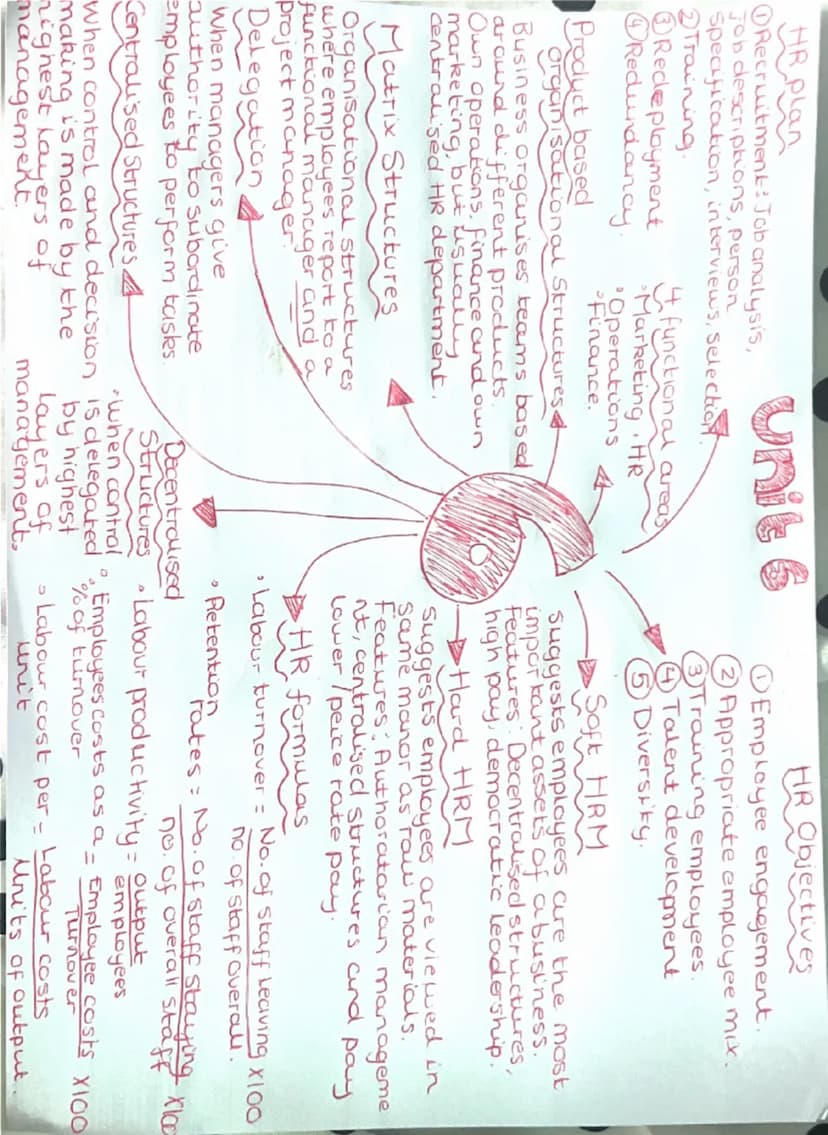 Unit 6
HR Plan
① Recruitment: Job analysis,
Job descriptions, person
specification, interviews, selection.
② Training.
③ Redeployment
④ Redundancy.
4 functional areas
• Marketing • HR
• Operations
• Finance.
Product based
organisational structures
Business organises teams based
around different products.
Own operations, finance and own
marketing, but usually
centralised HR department.
Matrix Structures
Organisational structures
where employees report to a
functional manager and a
project manager.
Delegation
When managers give
authority to subordinate
employees to perform tasks.
Centralised structures
When control and decision
making is made by the
highest layers of
management.
Decentralised
Structures
• When control
is delegated
by highest
layers of
management.
HR Objectives
① Employee engagement.
② Appropriate employee mix.
③ Training employees.
④ Talent development
⑤ Diversity.
Soft HRM
suggests employees are the most
important assets of a business.
Features: Decentralised structures,
high pay, democratic leadership.
Hard HRM
suggests employees are viewed in
same manor as raw materials.
Features: Authoratarian manageme
nt, centralised structures and pay
lower/peice rate pay.
HR formulas
• Labour turnover = No. of staff leaving x100
no. of staff overall.
• Retention
rates = No. of staff staying x100
no. of overall staff
• Labour productivity = output
employees
• Employees costs as a = Employee costs x100
% of turnover
Turnover
• Labour cost per = Labour costs
unit
Units of output.